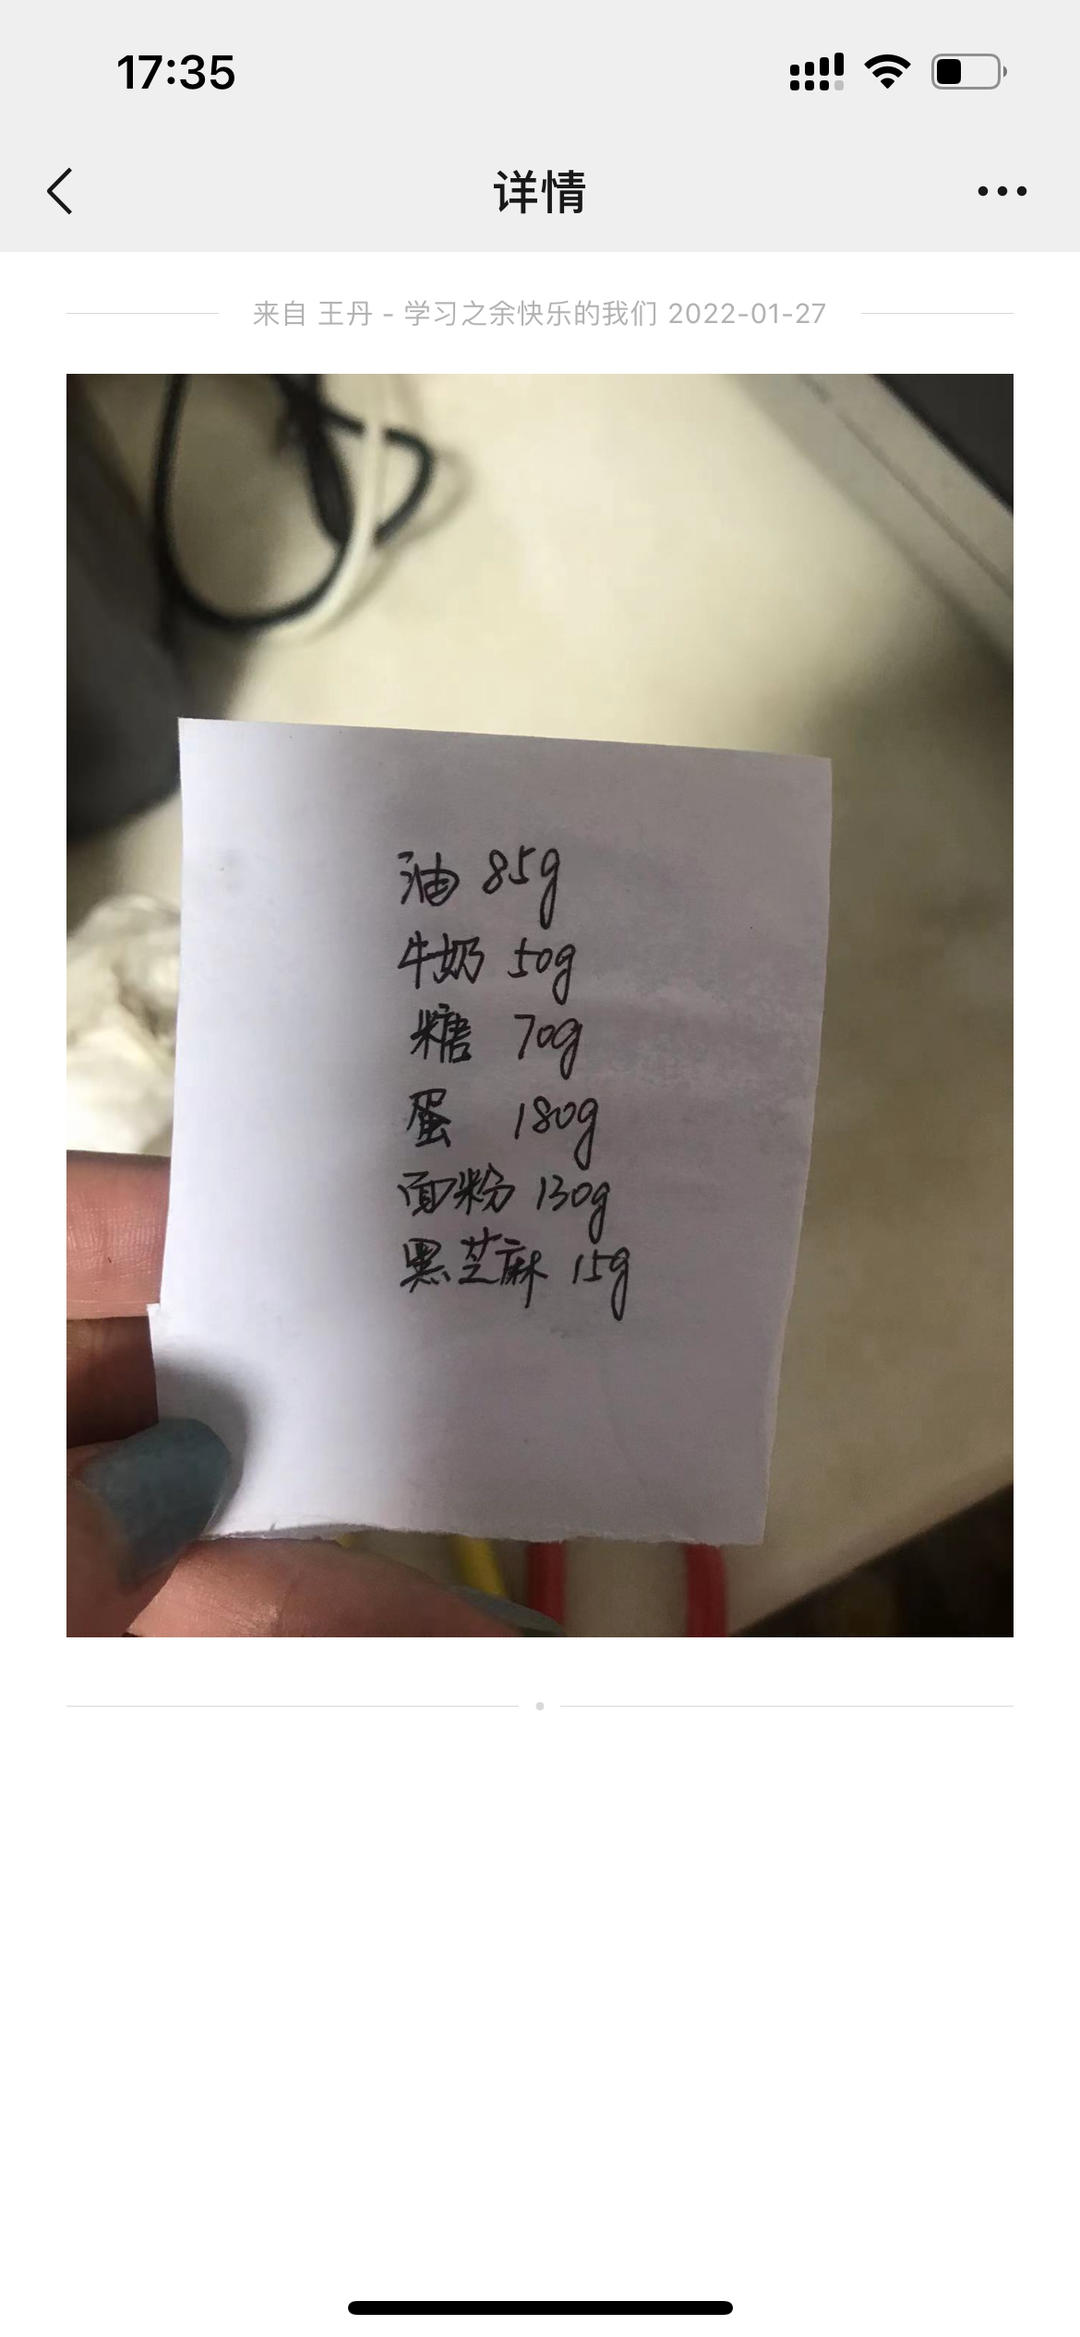 17:35
详情
来自 王丹 - 学习之余快乐的我们 2022-01-27
油 85g
牛奶 50g
糖 70g
蛋 180g
面粉 130g
黑芝麻 15g